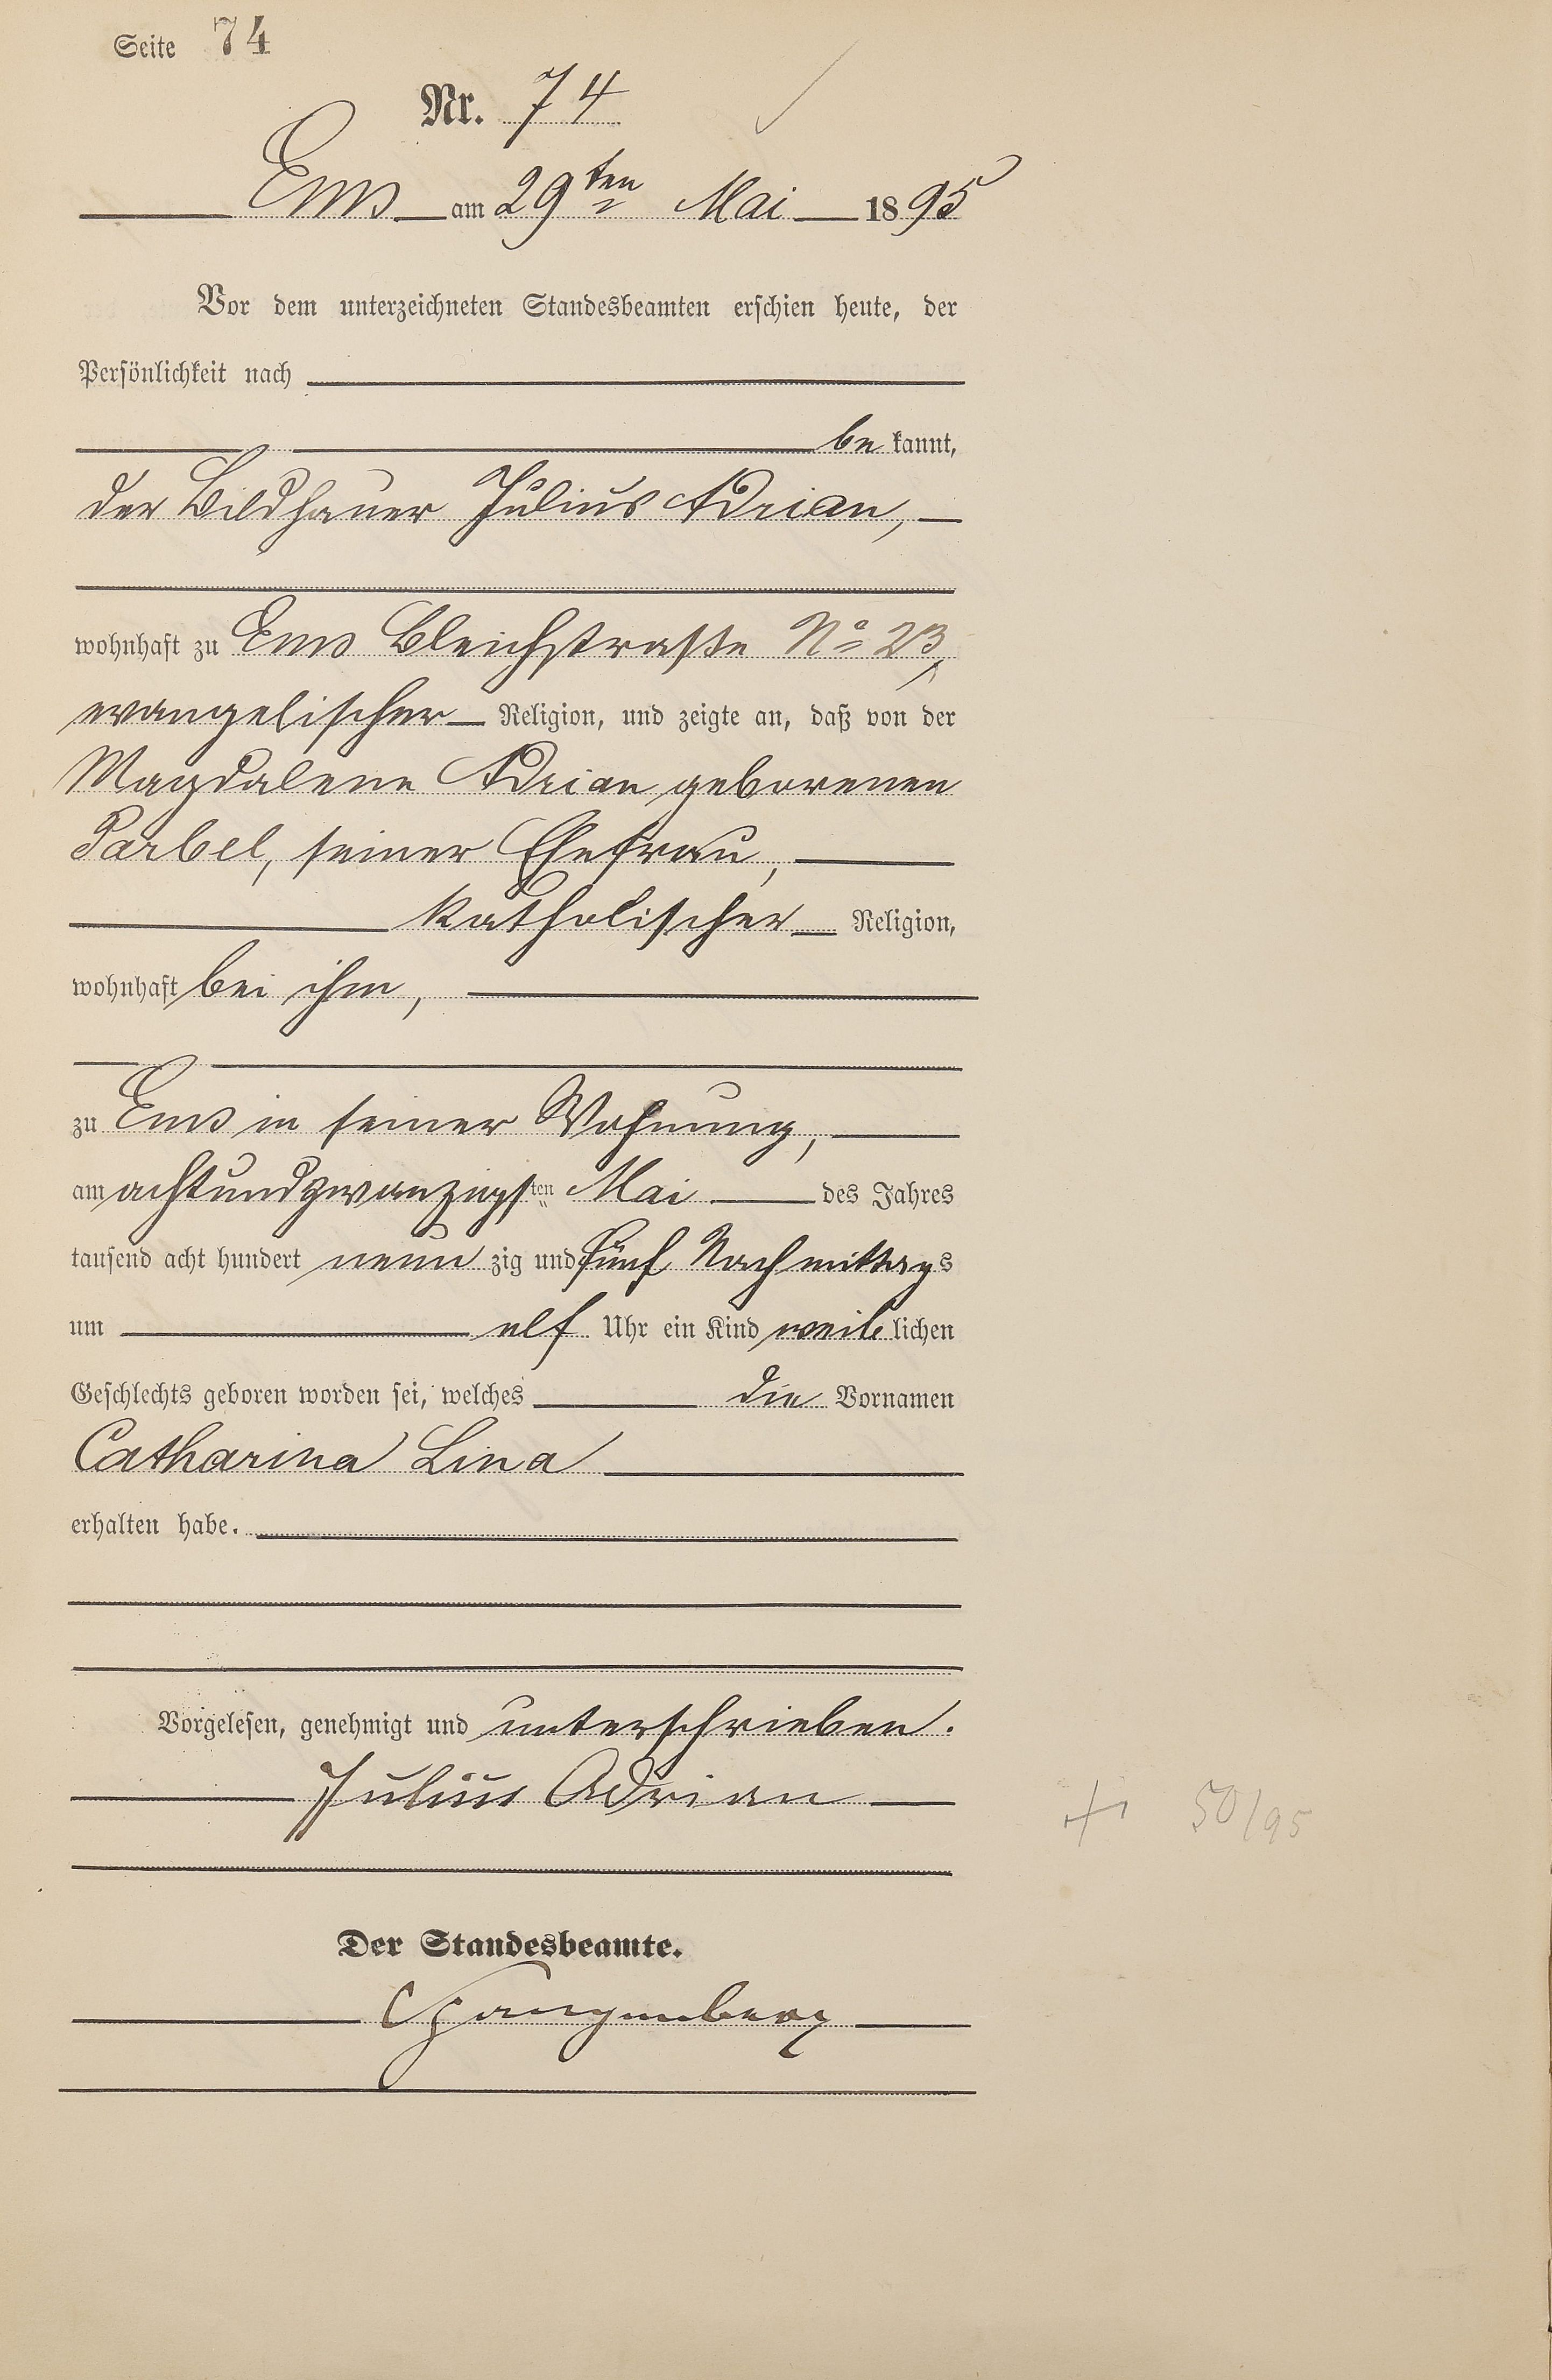 Seite 74
Nr. 74
Ems am 29ten Mai 1895
Vor dem unterzeichneten Standesbeamten erschien heute, der
Persönlichkeit nach
be kannt,
der Bildhauer Julius Adrian,
wohnhaft zu Ems Bleichstraße No 23,
evangelischer Religion, und zeigte an, daß von der
Magdalene Adrian geborenen
Parbel, seiner Ehefrau,
katholischer Religion,
wohnhaft bei ihm,
zu Ems in seiner Wohnung,
am achtundzwanzigsten Mai des Jahres
tausend acht hundert neun zig und fünf Nachmittags
um elf Uhr ein Kind weib lichen
Geschlechts geboren worden sei, welches die Vornamen
Catharina Lina
erhalten habe.
Vorgelesen, genehmigt und unterschrieben.
Julius Adrian
+ 50/95
Der Standesbeamte.